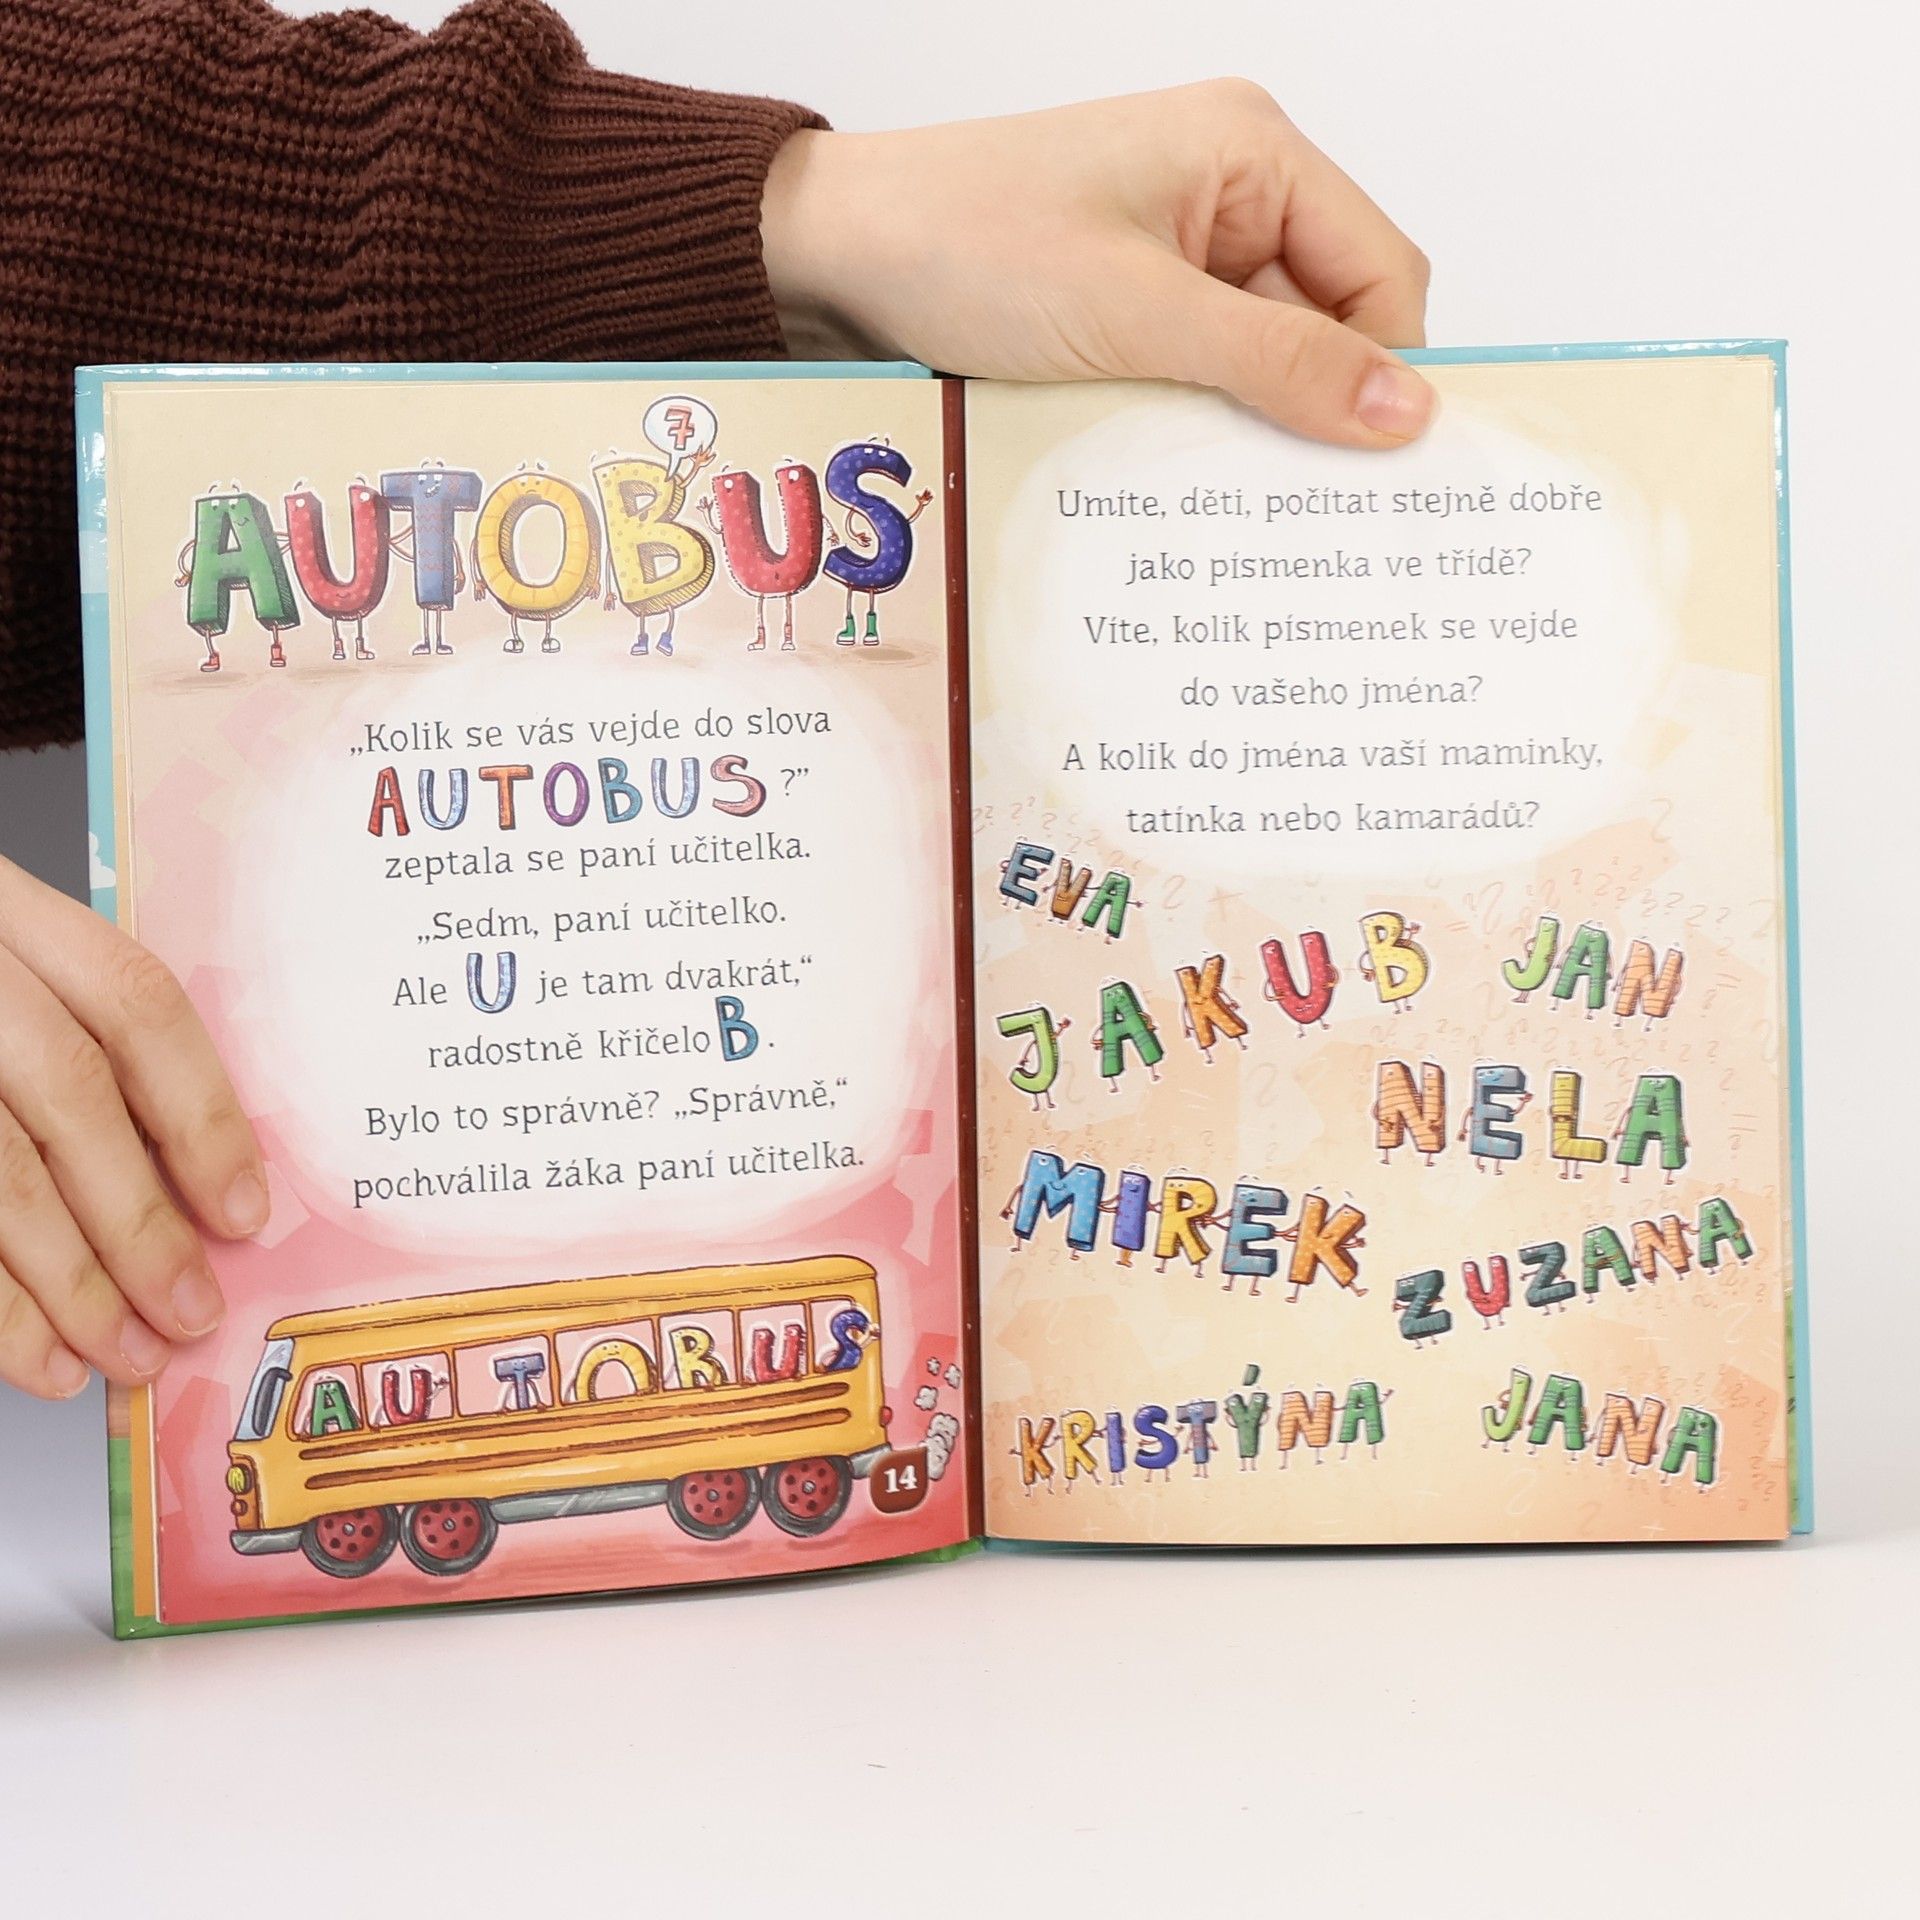 7
AUTOBUS
„Kolik se vás vejde do slova
AUTOBUS ?”
zeptala se paní učitelka.
„Sedm, paní učitelko.
Ale U je tam dvakrát,“
radostně křičelo B.
Bylo to správně? „Správně,“
pochválila žáka paní učitelka.
AUTOBUS
14
Umíte, děti, počítat stejně dobře
jako písmenka ve třídě?
Víte, kolik písmenek se vejde
do vašeho jména?
A kolik do jména vaší maminky,
tatínka nebo kamarádů?
EVA
JAKUB
JAN
NELA
MIREK
ZUZANA
KRISTÝNA
JANA